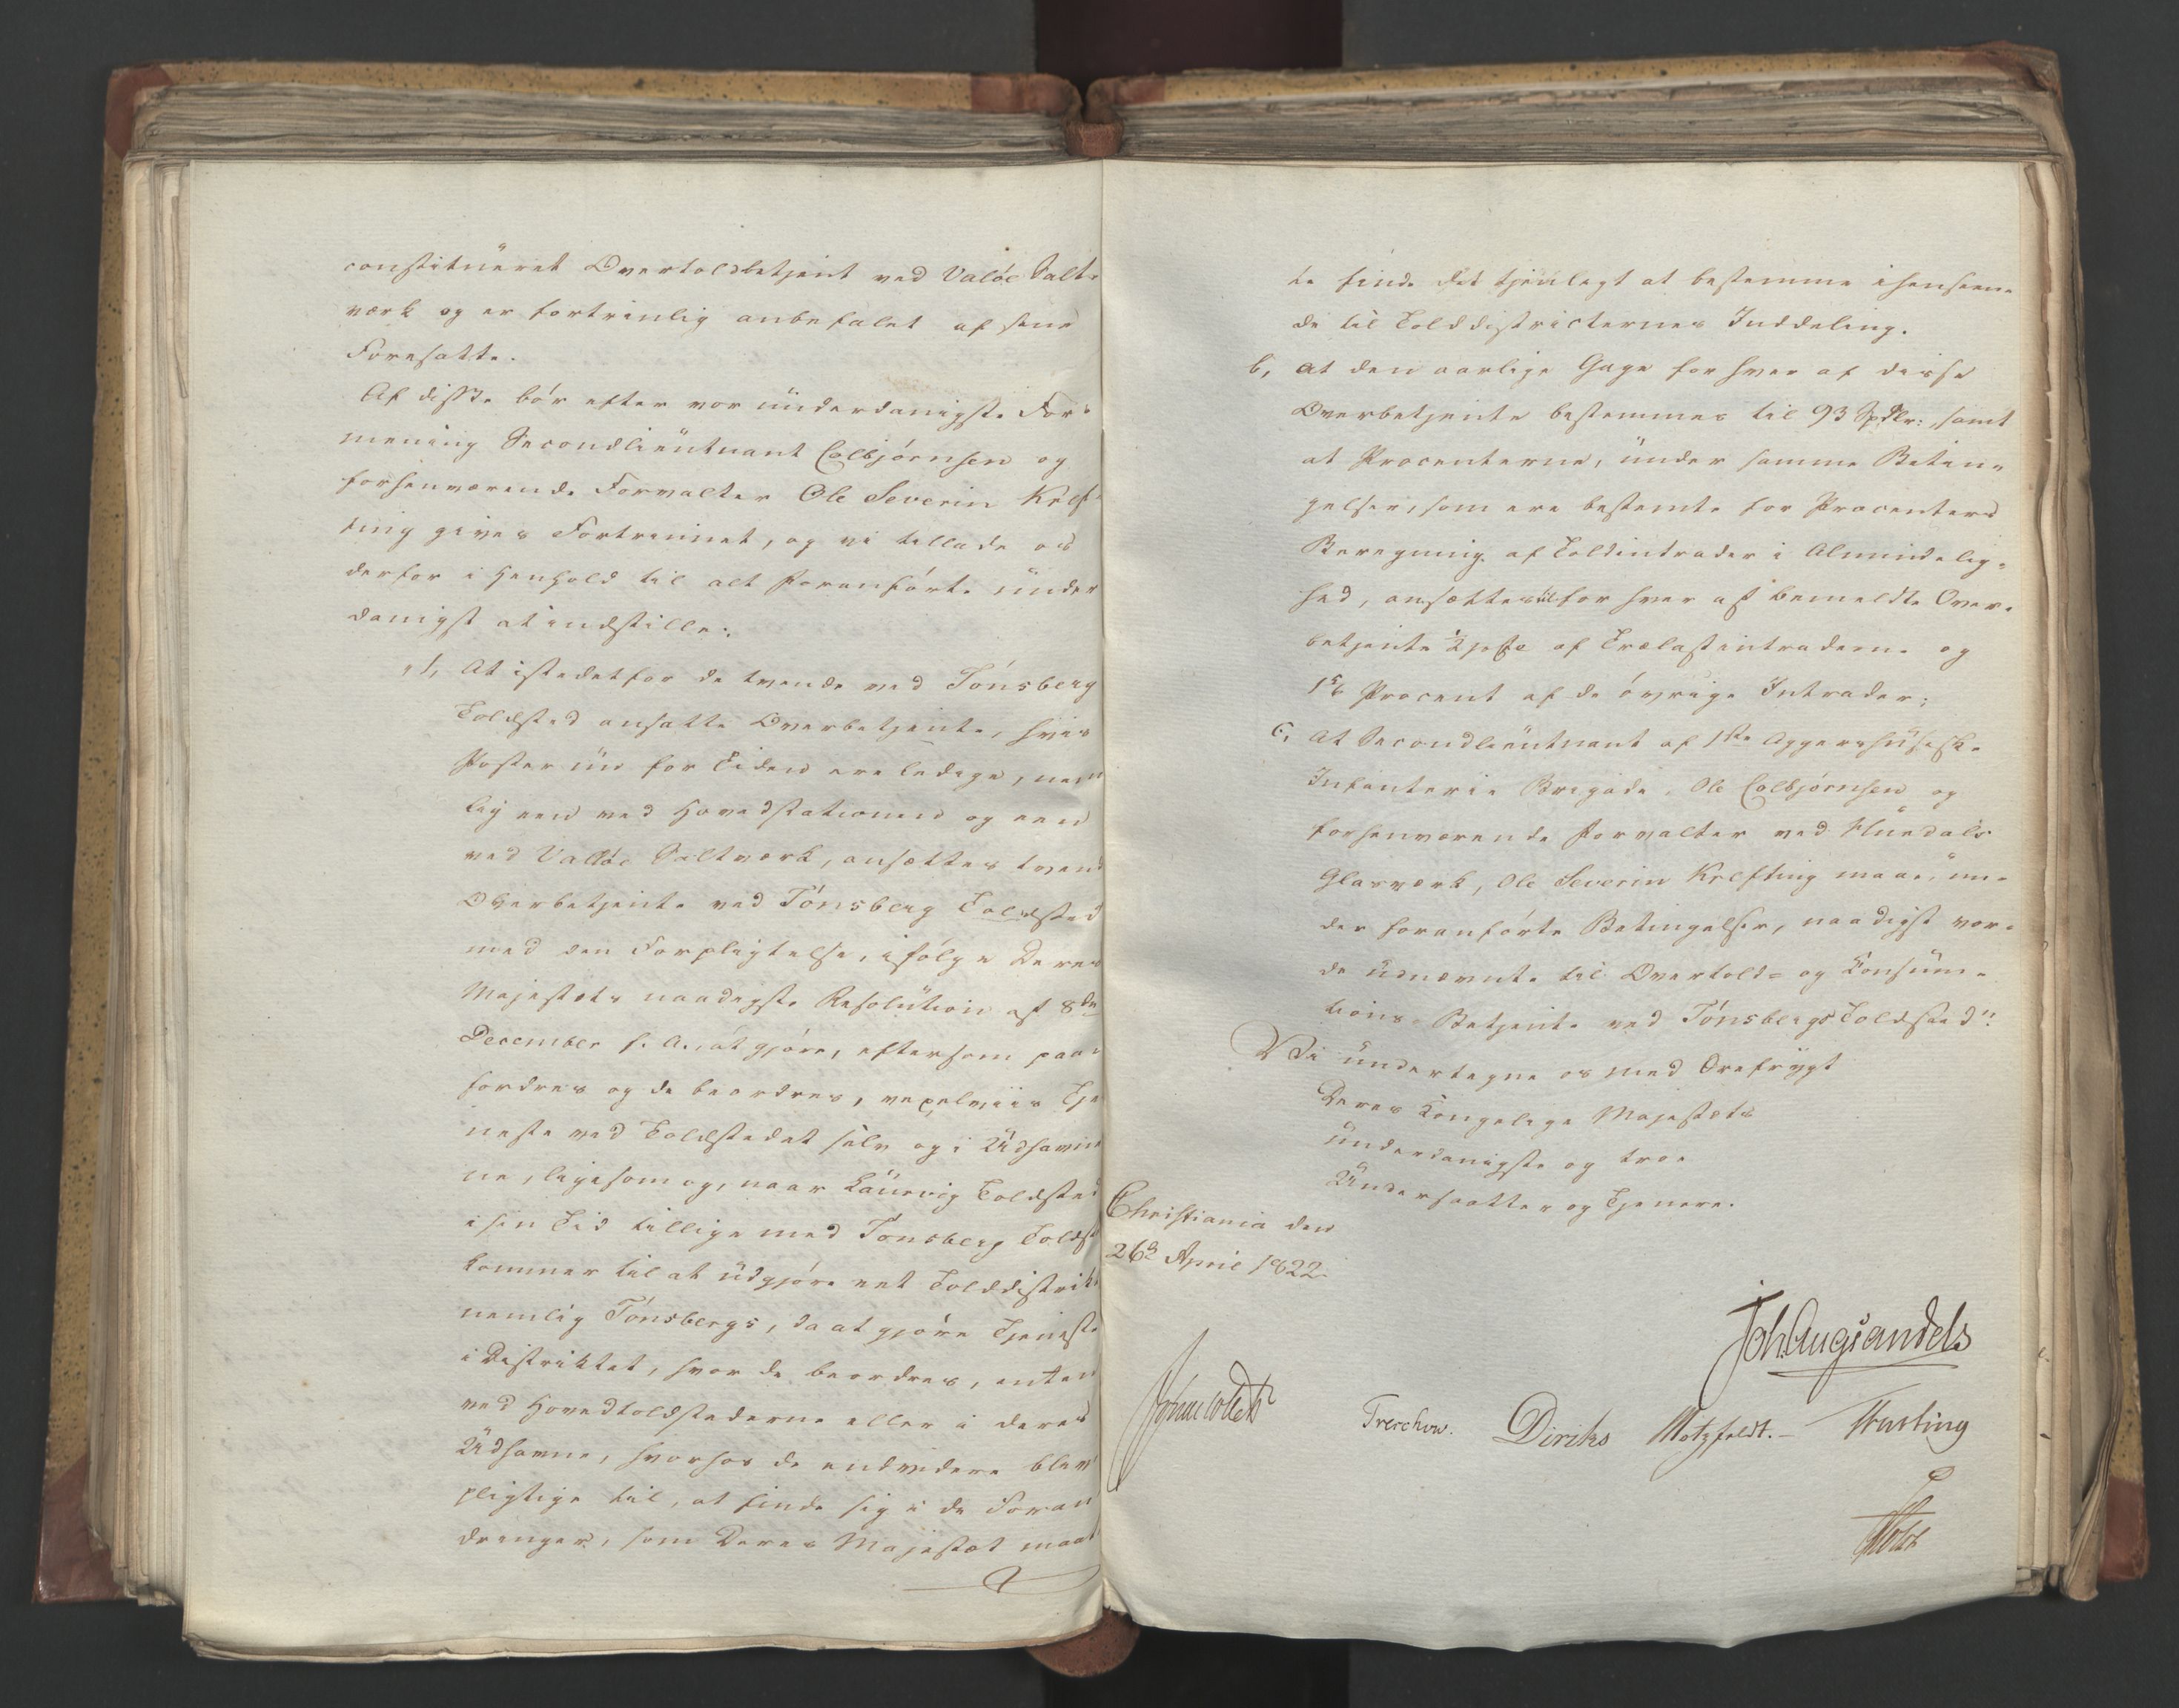 constitueret Overtoldbetjent ved Valøe Salt-
værk og er fortrinlig anbefalet af sine
Foresatte.
Af disse bør efter vor underdanigste For-
mening Secondlieutnant Colbjørnsen og
forhenværende Forvalter Ole Severin Kref-
ting gives Fortrinnet, og vi tillade os
derfor i Henhold til alt foranførte under
danigst at indstille:
1, At istedetfor de tvende ved Tønsberg
Toldsted ansatte Overbetjente, hvis
Poster nu for Tiden ere ledige, nem
lig een ved Hovedstationen og een
ved Valløe Saltværk, ansættes tvend
Overbetjente ved Tønsberg Toldsted
med den Forpligtelse, ifølge Deres
Majestæts naadigste Resolution af 8de
December f. A., at gjøre, eftersom paa-
fordres og de beordres, vexelviis Tje
neste ved Toldstedet selv og i Udhavne
ne, ligesom og, naar Laurvig Toldsted
i sin Tid tillige med Tønsberg Toldst
kommer til at udgjøre eet Tolddistrikt
nemlig Tønsbergs, da at gjøre Tjeneste
i Distriktet, hvor de beordres, enten
ved Hovedtoldstederne eller i deres
Udhavne, hvorhos de endvidere blev
pligtige til, at finde sig i de Foran
dringer, som Deres Majestæt maat
te finde det tjenligt at bestemme i henseen-
de til Tolddistricternes Inddeling.
b, at den aarlige Gage for hver af disse
Overbetjente bestemmes til 93 Spdlr:, samt
at Procenterne, under samme Betin-
gelser, som ere bestemte for Procenters
Beregning af Toldintrader i Almindelig-
hed, ansættes til for hver af bemeldte Over-
betjente ½ pCt af Trælastintraderne og
1⅚ Procent af de øvrige Intrader;
c, At Secondlieutnant af 1ste Aggershuusiske
Infanterie Brigade, Ole Colbjørnsen og
forhenværende Forvalter ved Hurdals
Glasværk, Ole Severin Krefting maae, un-
der foranførte Betingelser, naadigst vor-
de udnævnte til Overtold- og Consum-
tions-Betjente ved Tønsbergs Toldsted".
Vi undertegne os med Ærefrygt
Deres Kongelige Majestæts
underdanigste og troe
Undersaatter og Tjenere.
Christiania den
26d April 1822.
Joh. Aug. Sandels
Jonas Collett
Treschow. Diriks Motzfeldt. Fasting
Holst